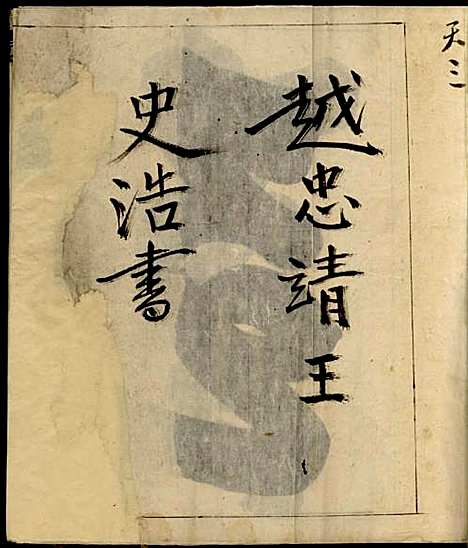 天三
越忠靖王
史浩書